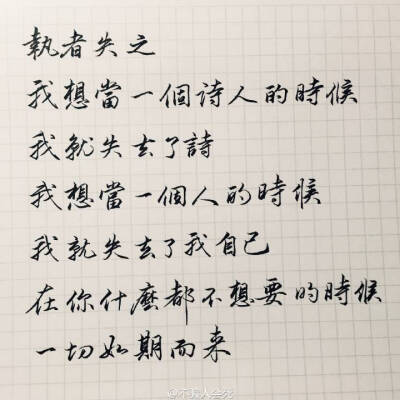 執者失之
我想當一個詩人的時候
我就失去了詩
我想當一個人的時候
我就失去了我自己
在你什麼都不想要的時候
一切如期而来